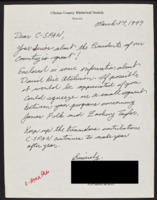 Clinton County Historical Society
March 27, 1999
Dear C-SPAN,
Your series about the Presidents of our
country is great!
Enclosed is some information about
David Rice Atchison. If possible
it would be appreciated if you
could squeeze in a small segment
between your programs concerning
James Polk and Zachary Taylor.
Keep up the tremendous contributions
C-SPAN continues to make year
after year.
Sincerely,